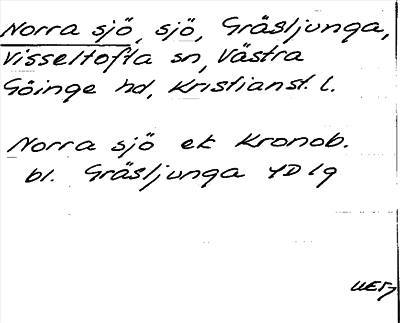 Norra sjö, sjö, Gräsljunga,
Visseltofta sn, Västra
Göinge hd, Kristianst. l.
Norra sjö ek Kronob.
bl. Gräsljunga 4D1g